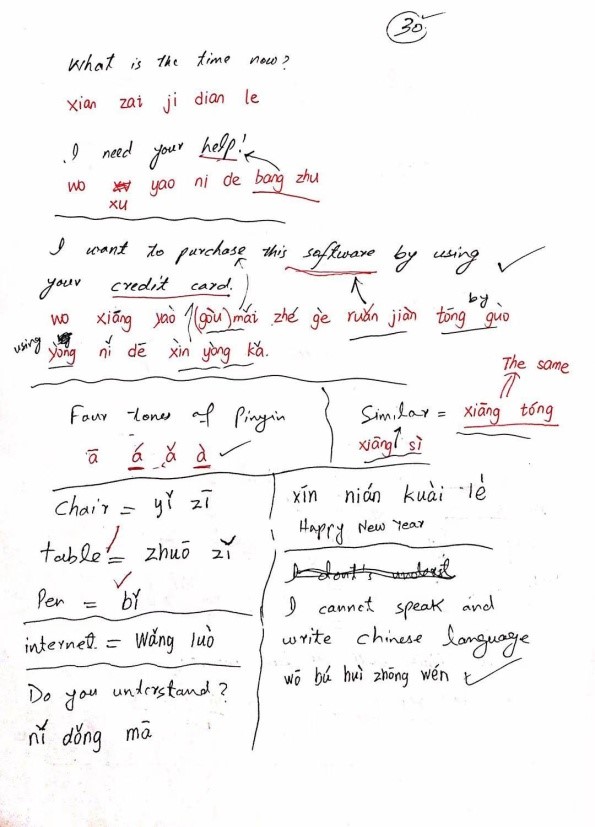 30
What is the time now?
xian zai ji dian le
I need your help!
wo yao ni de bang zhu
xu
I want to purchase this software by using
your credit card.
by
wo xiāng yào (gòu) mǎi zhé gè ruǎn jiàn tōng guò
using yòng nǐ dē xìn yòng kǎ.
The same
Four tones of Pinyin
ā á ǎ à
Similar = xiāng tóng
xiāng sì
Chair = yǐ zī
table = zhuō zǐ
Pen = bǐ
internet = Wǎng luò
Do you understand?
nǐ dǒng mā
xīn nián kuài lè
Happy New Year
I dont's underst
I cannot speak and
write chinese language
wō bú huì zhōng wén